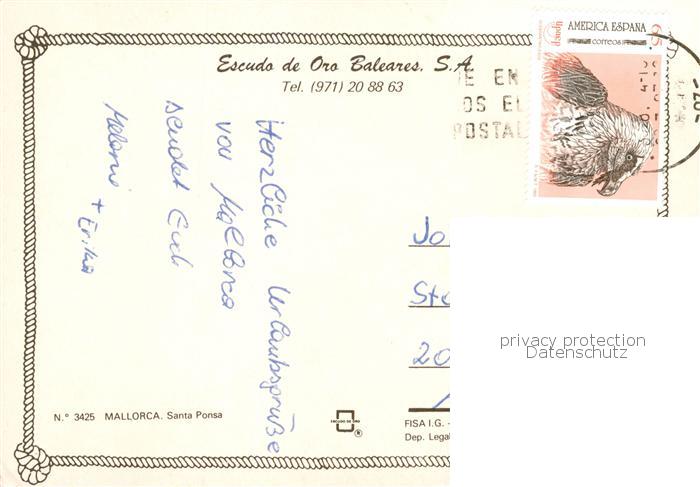 Escudo de Oro Baleares, S.A.
Tel. (971) 20 88 63
AMERICA ESPAÑA
correos
65
POSTAL
Herzliche Urlaubsgrüße
von Mallorca
sendet Euch
Melanie + Erika
Jo
Ste
20
privacy protection
Datenschutz
N.º 3425 MALLORCA. Santa Ponsa
ESCUDO DE ORO
®
FISA I.G. -
Dep. Legal